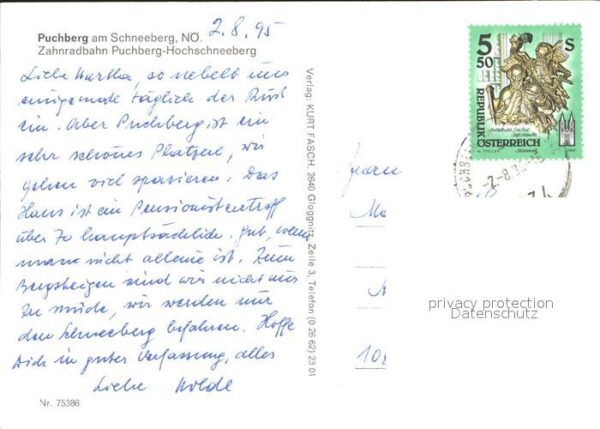 Puchberg am Schneeberg, NÖ. 2.8.95
Zahnradbahn Puchberg-Hochschneeberg
Liebe Martha, so nebelt uns
einigemale täglich der Rust
ein. Aber Puchberg ist ein
sehr schönes Platzerl, wir
gehen viel spazieren. Das
Haus ist ein Pensionistentreff
über 70 hauptsächlich. Gut, wenn
man nicht alleine ist. Zum
Bergsteigen sind wir nicht nur
zu müde, wir werden nur
den Schneeberg befahren. Hoffe
Dich in guter Verfassung, alles
Liebe
Nr. 75386
Verlag: KURT FASCH, 2640 Gloggnitz, Zeile 3, Telefon (0 26 62) 23 01
5 50 S
REPUBLIK
ÖSTERREICH
privacy protection
Datenschutz
108